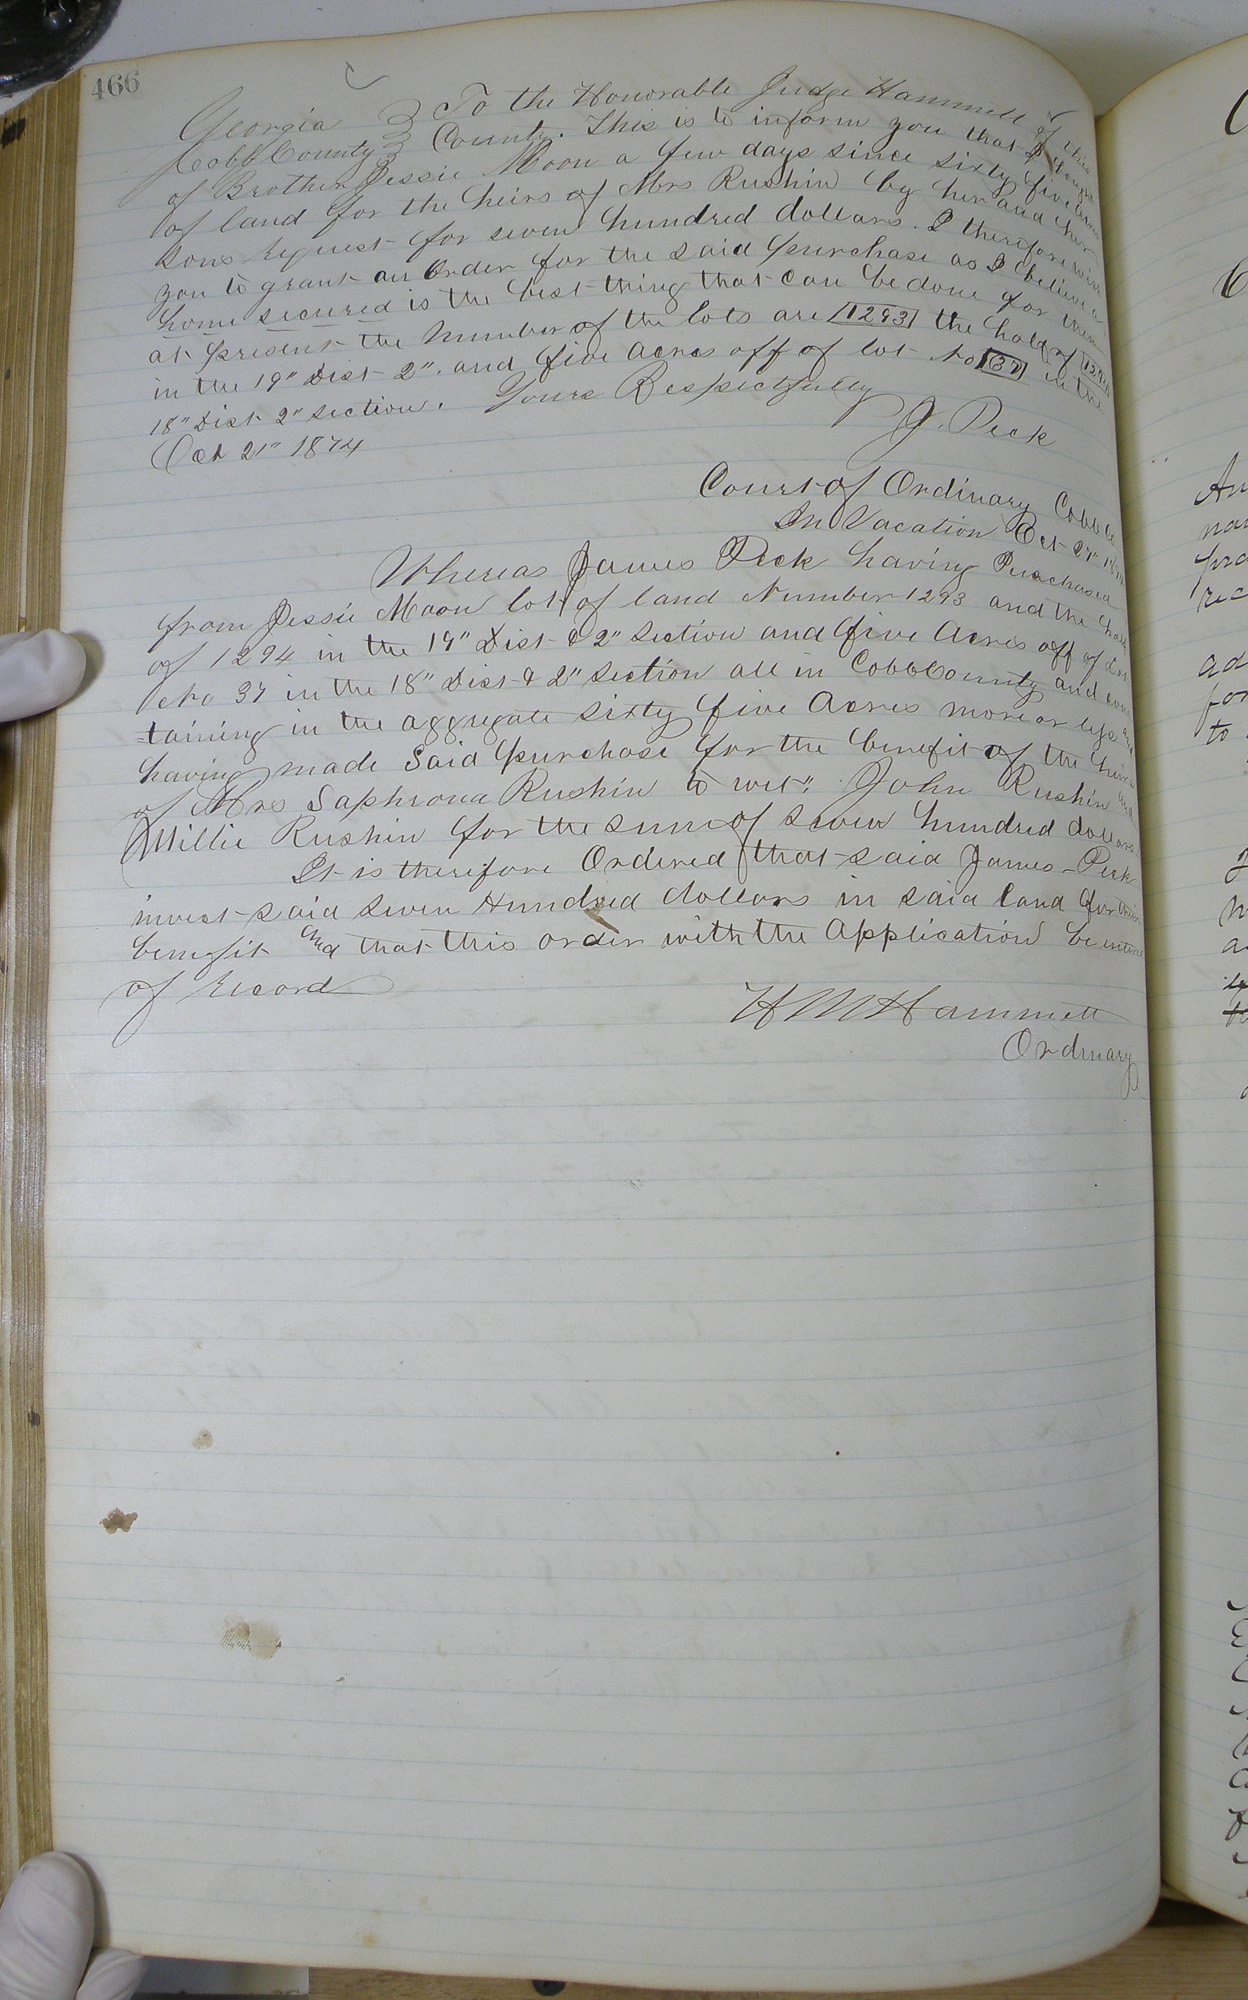 466
Georgia } To the Honorable Judge Hammett of this
Cobb County } County. This is to inform you that I bought
of Brother Jessie Moon a few days since sixty five acres
of land for the heirs of Mrs Rushin by her and her
sons request for seven hundred dollars. I therefore wish
you to grant an Order for the said purchase as I believe a
home secured is the best thing that can be done for them
at present the number of the lots are 1293 the half of 1294
in the 19" Dist 2" and five Acres off of lot No 37 in the
18" Dist 2" section. Yours Respectfully
Oct 21" 1874 J. Peck
Court of Ordinary Cobb Co
In Vacation Oct 27"
Whereas James Peck having Purchased
from Jessie Moon lot of land Number 1293 and the half
of 1294 in the 19" Dist & 2" Section and five Acres off of Lot
No 37 in the 18" Dist & 2" Section all in Cobb County and con
taining in the aggregate sixty five Acres more or less and
having made Said purchase for the benefit of the heirs
of Mrs Saphrona Rushin to wit". John Rushin and
Willie Rushin for the sum of seven hundred dollars.
It is therefore Ordered that said James Peck
invest said seven Hundred dollars in said land for their
benefit And that this order with the Application be entered
of record
H M Hammett
Ordinary